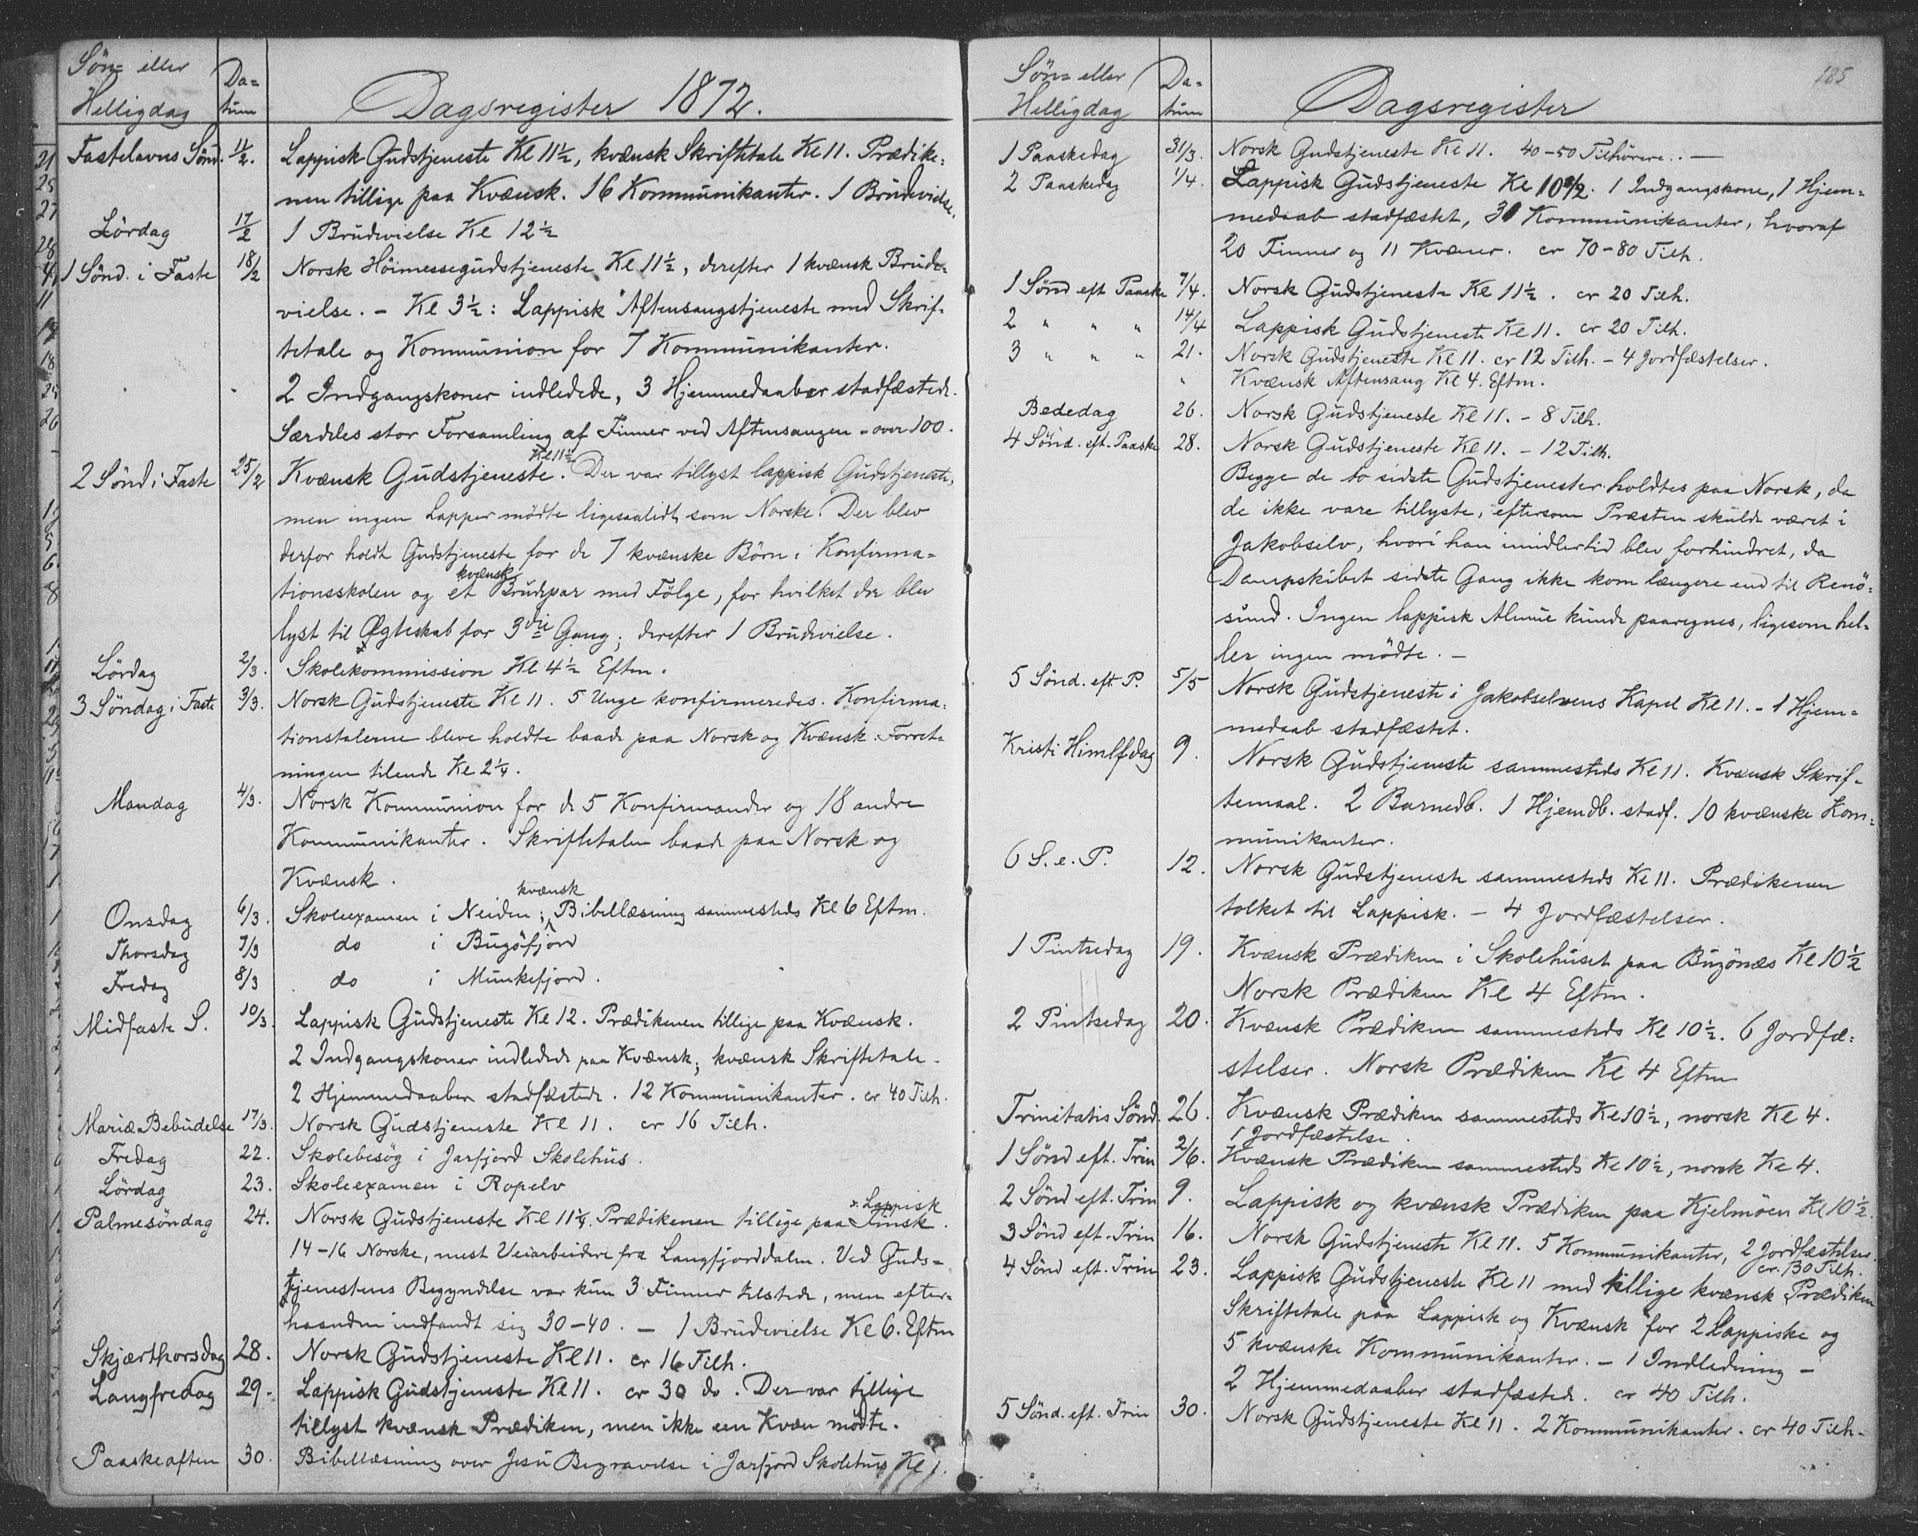 Søn- eller Helligdag
Da-
tum
Dagsregister 1872.
Fastelavns Sønd. 11/2. Lappisk Gudstjeneste Kl 11½, kvænsk Skriftetale Kl 11. Prædike-
nen tillige paa Kvænsk. 16 Kommunikanter. 1 Brudevielse.
Lørdag 17/2 1 Brudevielse Kl 12½
1 Sønd. i Faste 18/2 Norsk Høimessegudstjeneste Kl 11½, derefter 1 kvænsk Brude-
vielse. - Kl 3½: Lappisk Aftensangstjeneste med Skrif-
tetale og Kommunion for 7 Kommunikanter.
2 Indgangskoner indledede, 3 Hjemmedaaber stadfæstede.
Særdeles stor Forsamling af Finner ved Aftensangen - over 100.
2 Sønd i Faste 25/2 Kvænsk Gudstjeneste Kl 11½. Der var tillyst lappisk Gudstjeneste,
men ingen Lapper mødte ligesaalidt som Norske. Der blev
derfor holdt Gudstjeneste for de 7 kvænske Børn i Konfirma-
tionsskolen og et kvænsk Brudepar med Følge, for hvilket der blev
lyst til Ægteskab for 3die Gang; derefter 1 Brudevielse.
Lørdag 2/3. Skolekommission Kl 4½ Eftm.
3 Søndag i Faste 3/3. Norsk Gudstjeneste Kl 11. 5 Unge konfirmeredes. Konfirma-
tionstalerne bleve holdte baade paa Norsk og Kvænsk. Forret-
ningen tilende Kl 2¼.
Mandag 4/3. Norsk Kommunion for de 5 Konfirmander og 18 andre
Kommunikanter. Skriftetalen baade paa Norsk og
Kvænsk.
Onsdag 6/3. Skoleexamen i Neiden; kvænsk Bibellæsning sammesteds Kl 6 Eftm.
Thorsdag 7/3 do i Bugøfjord
Fredag 8/3 do i Munkefjord.
Midfaste S. 10/3. Lappisk Gudstjeneste Kl 12. Prædikenen tillige paa Kvænsk.
2 Indgangskoner indledede paa Kvænsk; kvænsk Skriftetale.
2 Hjemmedaaber stadfæstede. 12 Kommunikanter. cr 40 Tilh.
Mariæ Bebudelse 17/3. Norsk Gudstjeneste Kl 11. cr 16 Tilh.
Fredag 22. Skolebesøg i Jarfjord Skolehus.
Lørdag 23. Skoleexamen i Ropelv
Palmesøndag 24. Norsk Gudstjeneste Kl 11¼. Prædikenen tillige paa Finsk Lappisk.
14-16 Norske, mest Veiarbeidere fra Langfjorddalen. Ved Guds-
tjenestens Begyndelse var kun 3 Finner tilstede, men efter-
haanden indfandt sig 30-40. - 1 Brudevielse Kl 6. Eftm
Skjærthorsdag 28. Norsk Gudstjeneste Kl 11. cr 16 Tilh.
Langfredag 29. Lappisk Gudstjeneste Kl 11. cr 30 do. Der var tillige
tillyst kvænsk Prædiken, men ikke een Kvæn mødte.
Paaskeaften 30. Bibellæsning over Jesu Begravelse i Jarfjord Skolehus Kl 1.
Søn- eller Helligdag
Da-
tum
Dagsregister
185
1 Paaskedag 31/3. Norsk Gudstjeneste Kl 11. 40-50 Tilhørere. -
2 Paaskedag 1/4. Lappisk Gudstjeneste Kl 10½. 1 Indgangskone, 1 Hjem-
medaab stadfæstet, 31 Kommunikanter, hvoraf
20 Finner og 11 Kvæner. cr 70-80 Tilh.
1 Sønd eft Paaske 7/4. Norsk Gudstjeneste Kl 11½. cr 20 Tilh.
2 " " " 14/4 Lappisk Gudstjeneste Kl 11. cr 20 Tilh.
3 " " " 21. Norsk Gudstjeneste Kl 11. cr 12 Tilh. - 4 Jordfæstelser.
" Kvænsk Aftensang Kl 4. Eftm.
Bededag 26. Norsk Gudstjeneste Kl 11. - 8 Tilh.
4 Sønd. eft. Paaske 28. Norsk Gudstjeneste Kl 11. - 12 Tilh.
Begge de to sidste Gudstjenester holdtes paa Norsk, da
de ikke vare tillyste, eftersom Præsten skulde været i
Jakobselv, hvori han imidlertid blev forhindret, da
Dampskibet sidste Gang ikke kom længere end til Renø-
sund. Ingen lappisk Almue kunde paaregnes, ligesom hel-
ler ingen mødte. -
5 Sønd. eft. P. 5/5 Norsk Gudstjeneste i Jakobselvens Kapel Kl 11. - 1 Hjem-
medaab stadfæstet.
Kristi Himlfdag 9. Norsk Gudstjeneste sammesteds Kl 11. Kvænsk Skrif-
temaal. 2 Barnedb. 1 Hjemdb. stadf. 10 kvænske Kom-
munikanter.
6 S. e. P. 12. Norsk Gudstjeneste sammesteds Kl 11. Prædikenen
tolket til Lappisk. - 4 Jordfæstelser.
1 Pintsedag 19. Kvænsk Prædiken i Skolehuset paa Bugønæs Kl 10½
Norsk Prædiken Kl 4 Eftm.
2 Pintsedag 20. Kvænsk Prædiken sammesteds Kl 10½. 6 Jordfæ-
stelser. Norsk Prædiken Kl 4 Eftm
Trinitatis Sønd. 26. Kvænsk Prædiken sammesteds Kl 10½, norsk Kl 4.
1 Jordfæstelse.
1 Sønd eft. Trin 2/6. Kvænsk Prædiken sammesteds Kl 10½, norsk Kl 4.
2 Sønd eft. Trin 9. Lappisk og kvænsk Prædiken paa Kjelmøen Kl 10½.
3 Sønd eft. Trin 16. Norsk Gudstjeneste Kl 11. 5 Kommunikanter, 2 Jordfæstelser.
cr. 30 Tilh.
4 Sønd eft. Trin 23. Lappisk Gudstjeneste Kl 11 med tillige kvænsk Prædiken
Skriftetale paa Lappisk og Kvænsk for 2 Lappiske og
5 kvænske Kommunikanter. - 1 Indledning -
2 Hjemmedaaber stadfæstede. cr 40 Tilh.
5 Sønd. eft. Trin 30. Norsk Gudstjeneste Kl 11. 2 Kommunikanter. cr 40 Tilh.